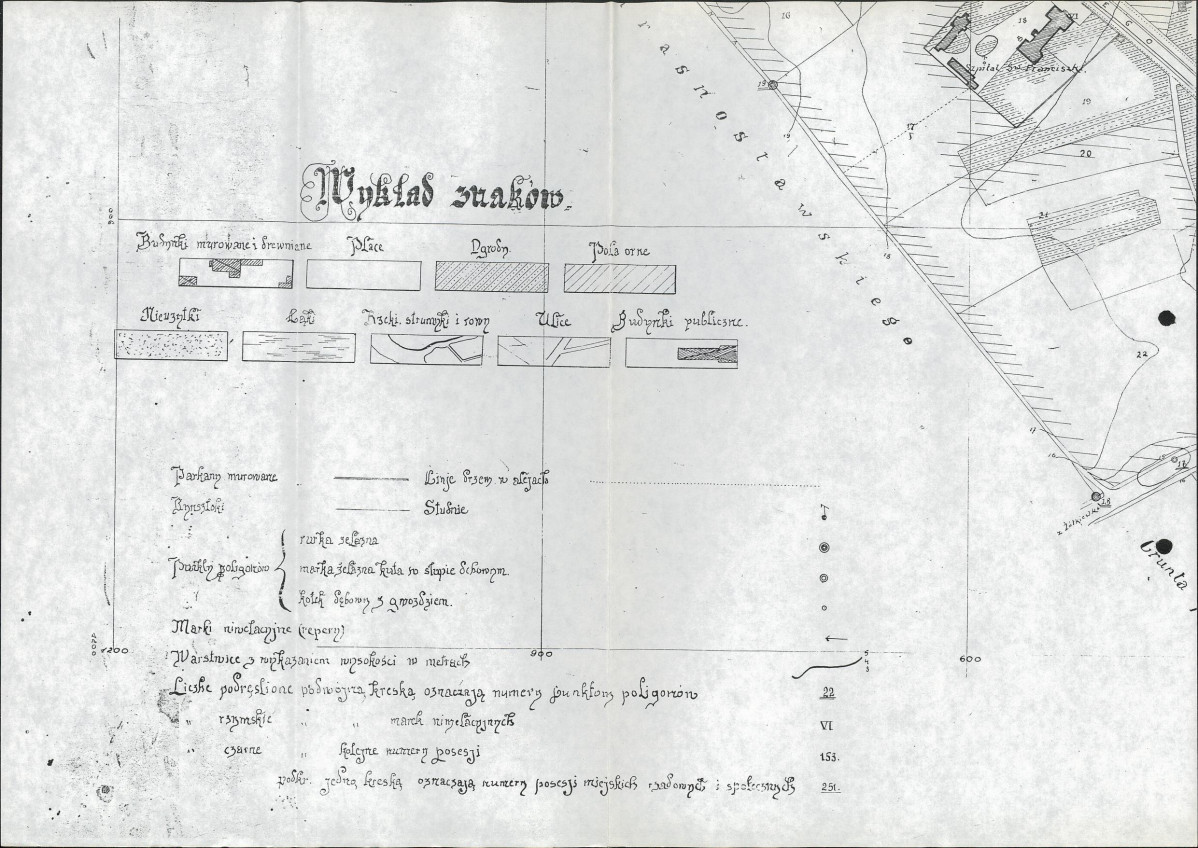 Wykład znaków.
Budynki murowane i drewniane Place Ogrody Pola orne
Nieużytki Łąki Rzeki, strumyki i rowy Ulice Budynki publiczne.
Parkany murowane Linje drzew w alejach
Rynsztoki Studnie
rurka żelazna
Punkty poligonów marka żelazna kuta w słupie dębowym.
kołek dębowy z gwoździem.
Marki niwelacyjne (repery)
Warstwice z wykazaniem wysokości w metrach
Liczby podkreślone podwójną kreską oznaczają numery punktów poligonów 22
" rzymskie " " marek niwelacyjnych VI
" czarne " kolejne numery posesji 153.
podkr. jedną kreską oznaczają numery posesji miejskich rządowych i społecznych 251.
1200 900 600
rasnostawskiego
Szpital Św. Franciszk.
EGO
16
18
VI
19
19
17
20
21
18
22
17
18
Grunta